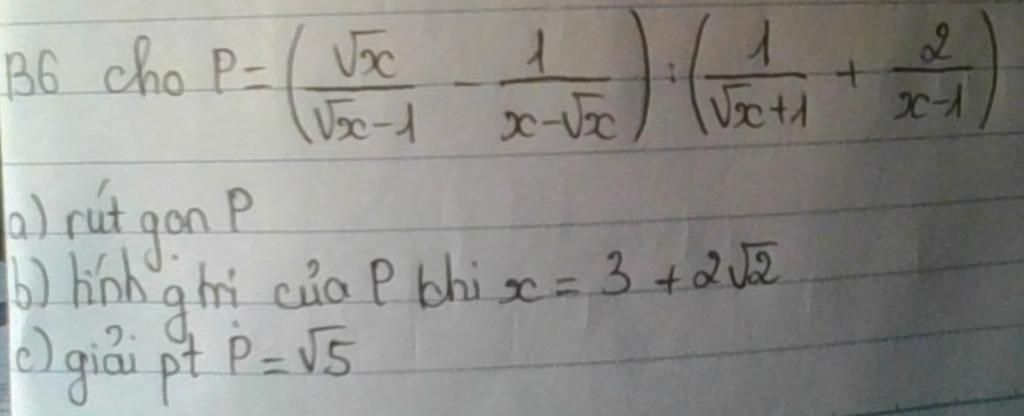 B6 cho P = (√x/(√x-1) - 1/(x-√x)) : (1/(√x+1) + 2/(x-1))
a) rút gọn P
b) tính g trị của P khi x = 3 + 2√2
c) giải pt P = √5